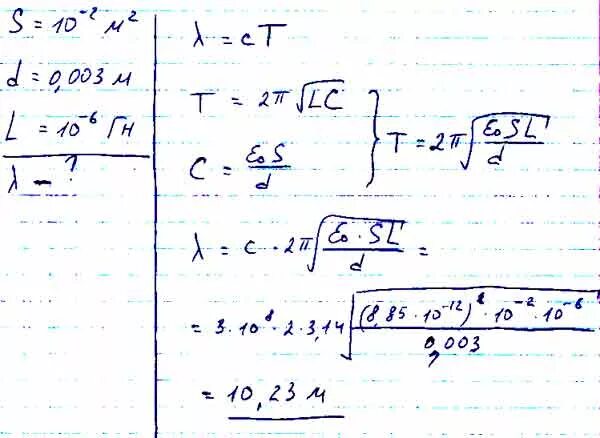 S = 10⁻² м²
d = 0,003 м
L = 10⁻⁶ Гн
λ – ?
λ = cT
T = 2π√(LC)
C = ε₀S/d
} T = 2π√(ε₀SL/d)
λ = c · 2π√(ε₀ · SL/d) =
= 3 · 10⁸ · 2 · 3,14√((8,85 · 10⁻¹²) · 10⁻² · 10⁻⁶/0,003)
= 10,23 м